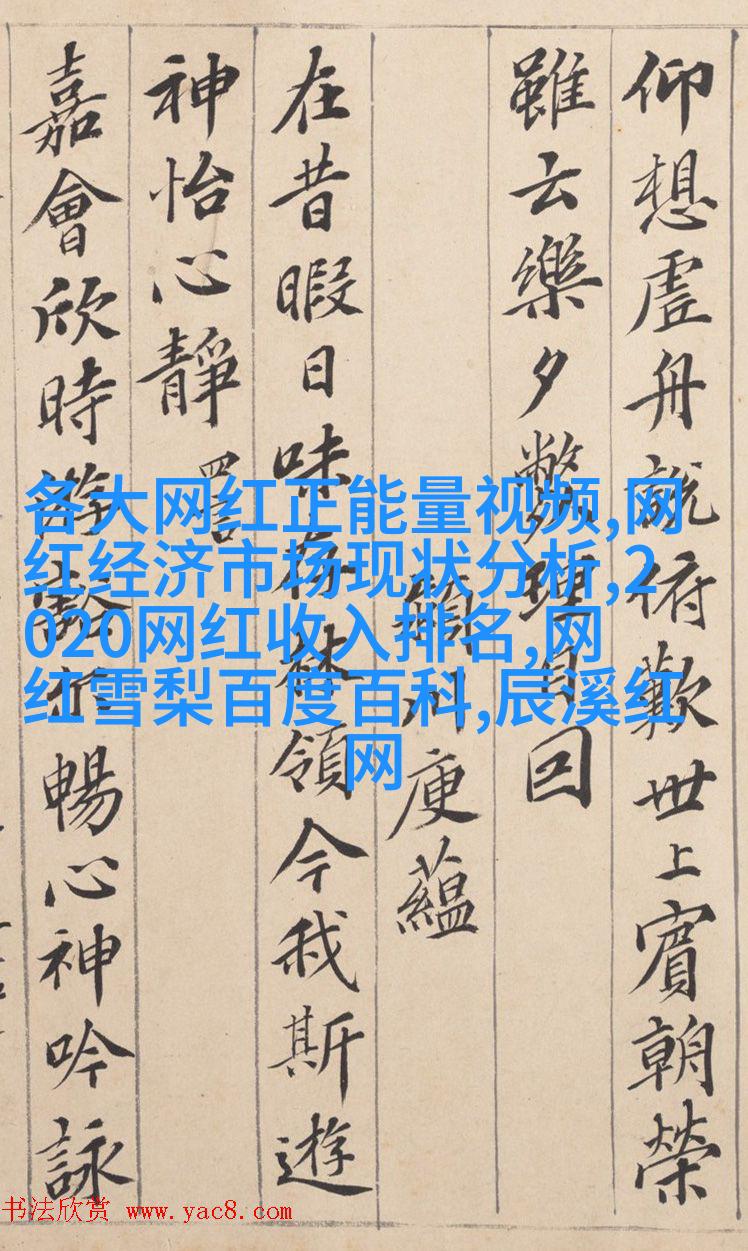 仰想虛舟說俯歎世上賓朝榮
雖云樂夕弊理自回
川庾蘊
在昔暇日味存林領今我斯遊
神怡心靜
嘉會欣時游豁暢心神吟詠
各大网红正能量视频,网
红经济市场现状分析,2
020网红收入排名,网
红雪梨百度百科,辰溪红
网
书法欣赏 www.yac8.com